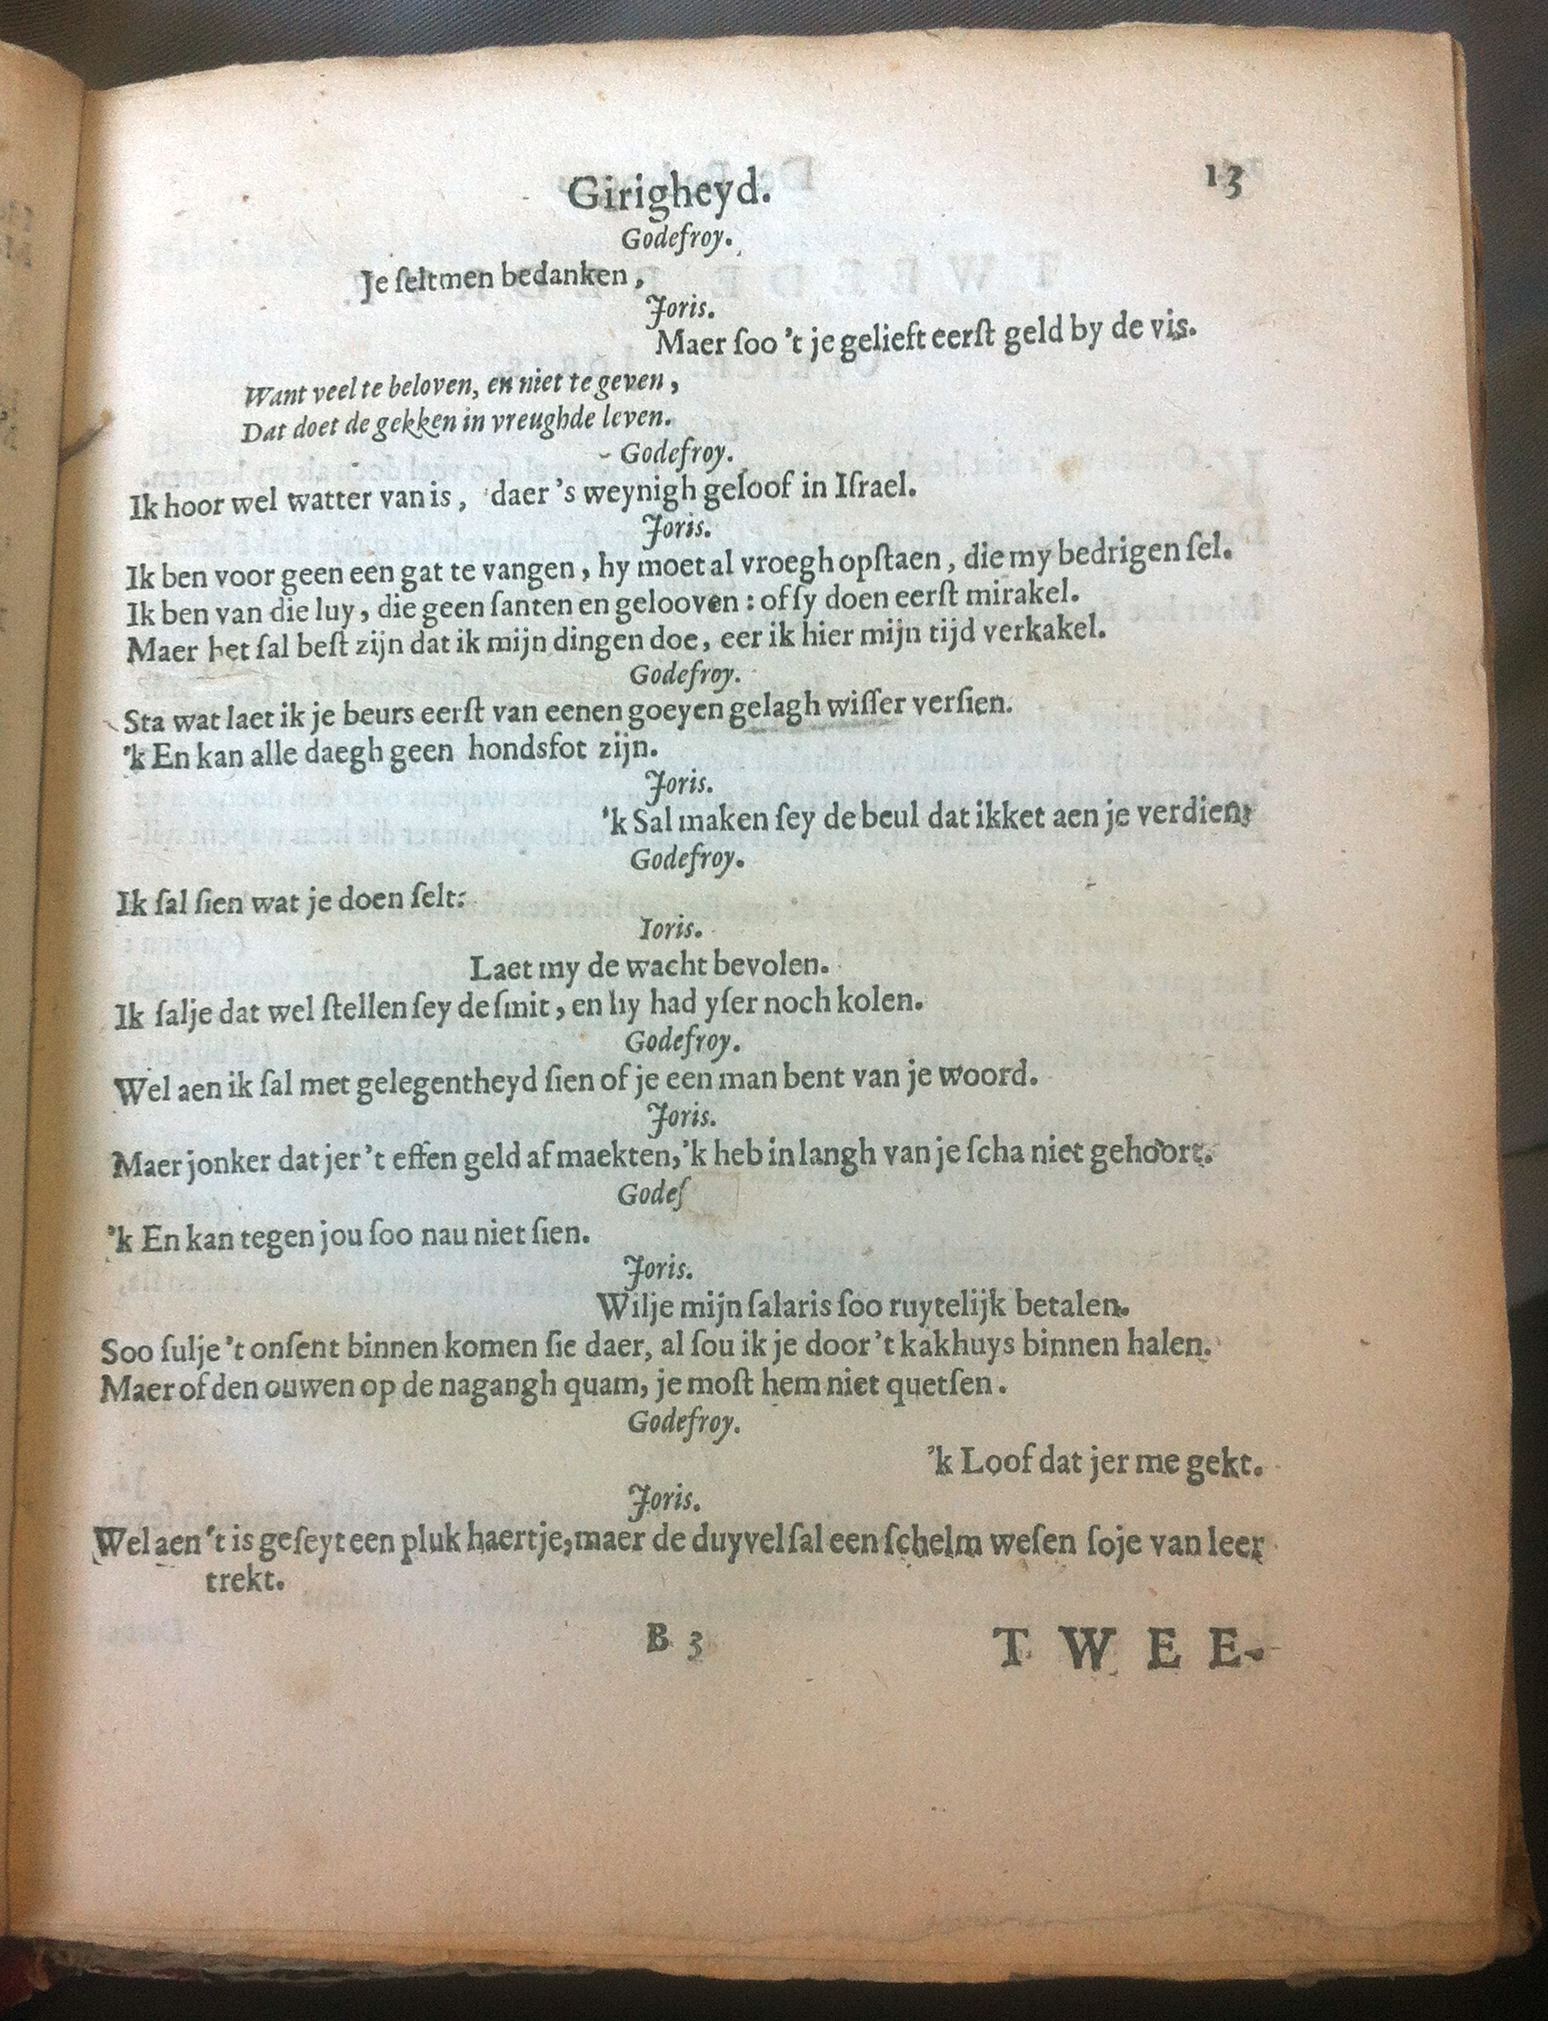 Girigheyd. 13
Godefroy.
Je ſeltmen bedanken,
Joris.
Maer ſoo 't je gelieft eerſt geld by de vis.
Want veel te beloven, en niet te geven,
Dat doet de gekken in vreughde leven.
Godefroy.
Ik hoor wel watter van is, daer 's weynigh geloof in Iſrael.
Joris.
Ik ben voor geen een gat te vangen, hy moet al vroegh opſtaen, die my bedrigen ſel.
Ik ben van die luy, die geen ſanten en gelooven: of ſy doen eerſt mirakel.
Maer het ſal beſt zijn dat ik mijn dingen doe, eer ik hier mijn tijd verkakel.
Godefroy.
Sta wat laet ik je beurs eerſt van eenen goeyen gelagh wiſſer verſien.
'k En kan alle daegh geen hondsfot zijn.
Joris.
'k Sal maken ſey de beul dat ikket aen je verdien;
Godefroy.
Ik ſal ſien wat je doen ſelt:
Ioris.
Laet my de wacht bevolen.
Ik ſalje dat wel ſtellen ſey de ſmit, en hy had yſer noch kolen.
Godefroy.
Wel aen ik ſal met gelegentheyd ſien of je een man bent van je woord.
Joris.
Maer jonker dat jer 't effen geld af maekten, 'k heb in langh van je ſcha niet gehoort.
Godeſ
'k En kan tegen jou ſoo nau niet ſien.
Joris.
Wilje mijn ſalaris ſoo ruytelijk betalen.
Soo ſulje 't onſent binnen komen ſie daer, al ſou ik je door 't kakhuys binnen halen.
Maer of den ouwen op de nagangh quam, je moſt hem niet quetſen.
Godefroy.
'k Loof dat jer me gekt.
Joris.
Wel aen 't is geſeyt een pluk haertje, maer de duyvel ſal een ſchelm weſen ſoje van leer
trekt.
B 3 TWEE-